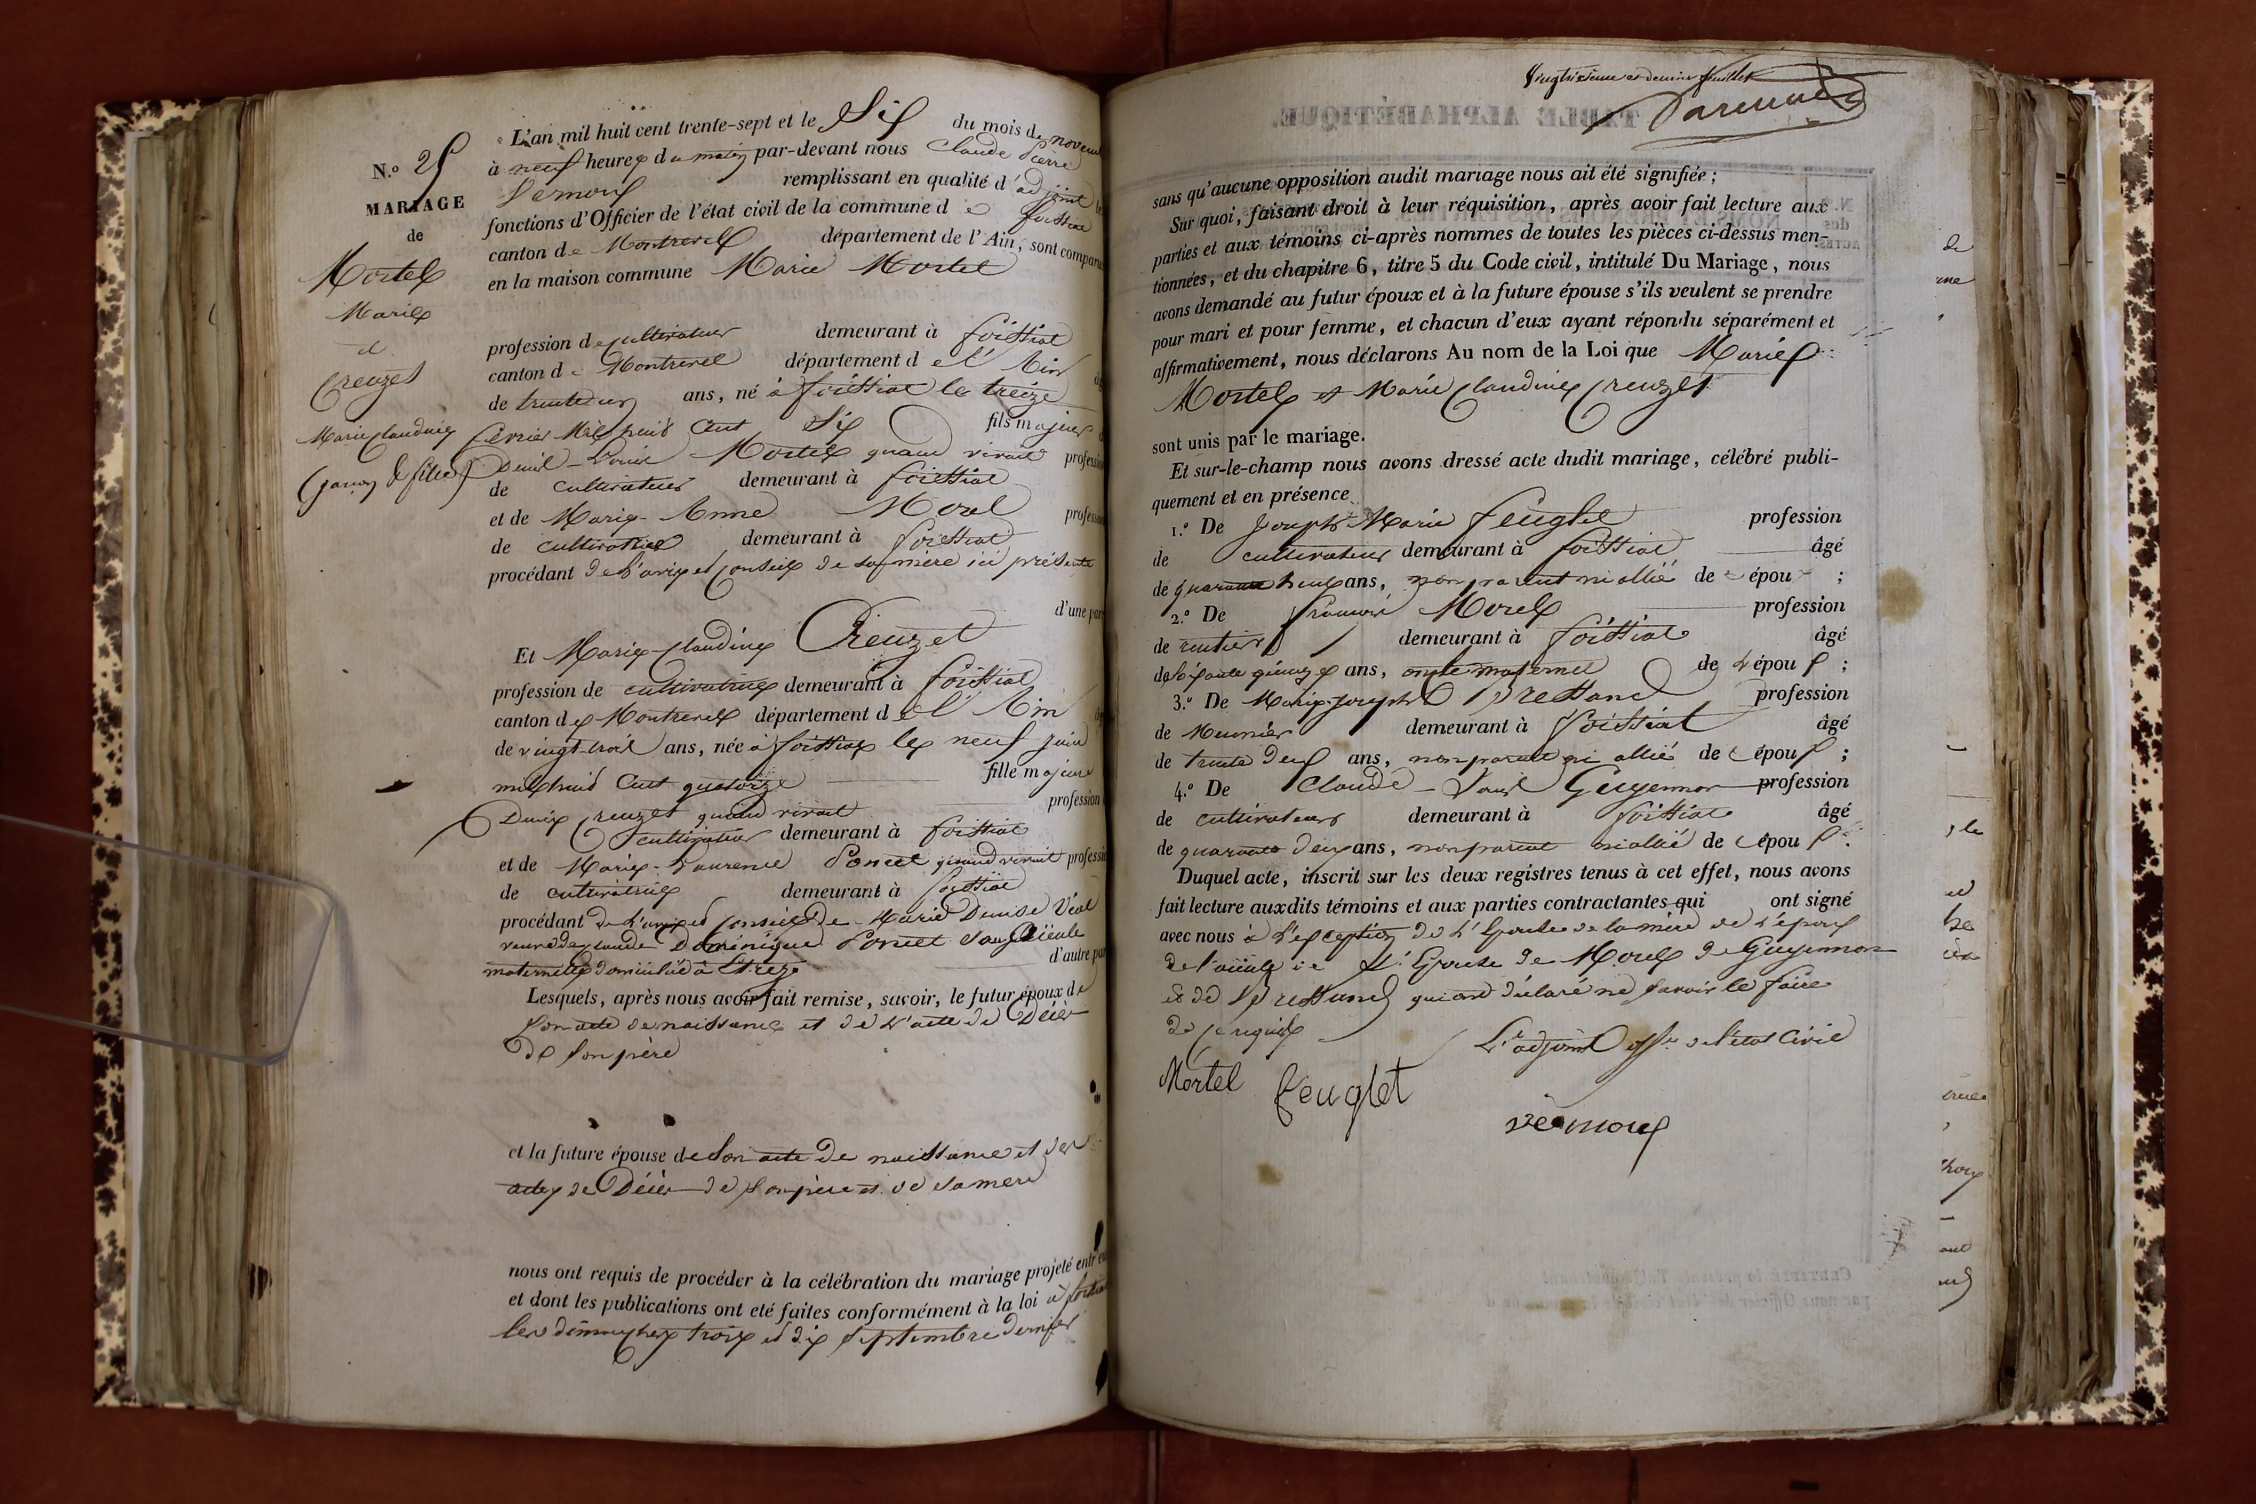 N.° 25
MARIAGE
de
Mortel
Marie
et
Creuzet
Marie Claudine
(garçon & fille)
L'an mil huit cent trente-sept et le Six du mois de novem
à neuf heures du matin par-devant nous Claude Pierre
remplissant en qualité d'adjoint
fonctions d'Officier de l'état civil de la commune de foissiat
canton de Montrevel département de l'Ain, sont compar
en la maison commune Marie Mortel
profession de cultivateur demeurant à foissiat
canton de Montrevel département de l'Ain
de trente un ans, né à foissiat le treize
février Mil huit Cent Six fils majeur
Denis-Louis Mortel quand vivait profession
de cultivateur demeurant à foissiat
et de Marie-Anne Morel profession
de cultivatrice demeurant à foissiat
procédant de l'avis et conseil de sa mère ici présente
d'une par
Et Marie-Claudine Creuzet
profession de cultivatrice demeurant à foissiat
canton de Montrevel département de l'Ain
de vingt-trois ans, née à foissiat le neuf juin
mil huit Cent quatorze fille majeure
Denis Creuzet quand vivait profession
cultivateur demeurant à foissiat
et de Marie-Laurence Poncet quand vivait profession
de cultivatrice demeurant à foissiat
procédant de l'avis et conseil de Marie Denise Véal
veuve de Claude Dominique Poncet son aïeule
maternelle domiciliée à Etrez d'autre par
Lesquels, après nous avoir fait remise, savoir, le futur époux de
Son acte de naissance et de l'acte de Décès
de Son père
et la future épouse de Son acte de naissance et des
actes de Décès de son père et de sa mère
nous ont requis de procéder à la célébration du mariage projeté entr'eu
et dont les publications ont eté faites conformément à la loi à foissiat
les dimanches trois et dix septembre dernier
Vingtième et dernier feuillet
sans qu'aucune opposition audit mariage nous ait été signifiée;
Sur quoi, faisant droit à leur réquisition, après avoir fait lecture aux
parties et aux témoins ci-après nommes de toutes les pièces ci-dessus men-
tionnées, et du chapitre 6, titre 5 du Code civil, intitulé Du Mariage, nous
avons demandé au futur époux et à la future épouse s'ils veulent se prendre
pour mari et pour femme, et chacun d'eux ayant répondu séparément et
affirmativement, nous déclarons Au nom de la Loi que Marie
Mortel et Marie Claudine Creuzet
sont unis par le mariage.
Et sur-le-champ nous avons dressé acte dudit mariage, célébré publi-
quement et en présence
1.° De Joseph Marie feuglet profession
de cultivateur demeurant à foissiat âgé
de quarante ans, non parent ni allié de épou ;
2.° De François Morel profession
de rentier demeurant à foissiat âgé
de soixante quinze ans, oncle maternel de l'époux ;
3.° De Marie-Joseph Bressand profession
de Meunier demeurant à foissiat âgé
de trente deux ans, non parent ni allié de époux ;
4.° De Claude-Louis Guyennon profession
de cultivateur demeurant à foissiat âgé
de quarante deux ans, non parent ni allié de époux.
Duquel acte, inscrit sur les deux registres tenus à cet effet, nous avons
fait lecture auxdits témoins et aux parties contractantes qui ont signé
avec nous à l'exception de l'Epouse de la mère de l'époux
de l'aïeule de l'Epouse de Morel de Guyennon
et de Bressand qui ont déclaré ne savoir le faire
de ce requis
L'adjoint off. de l'état Civil
Mortel feuglet